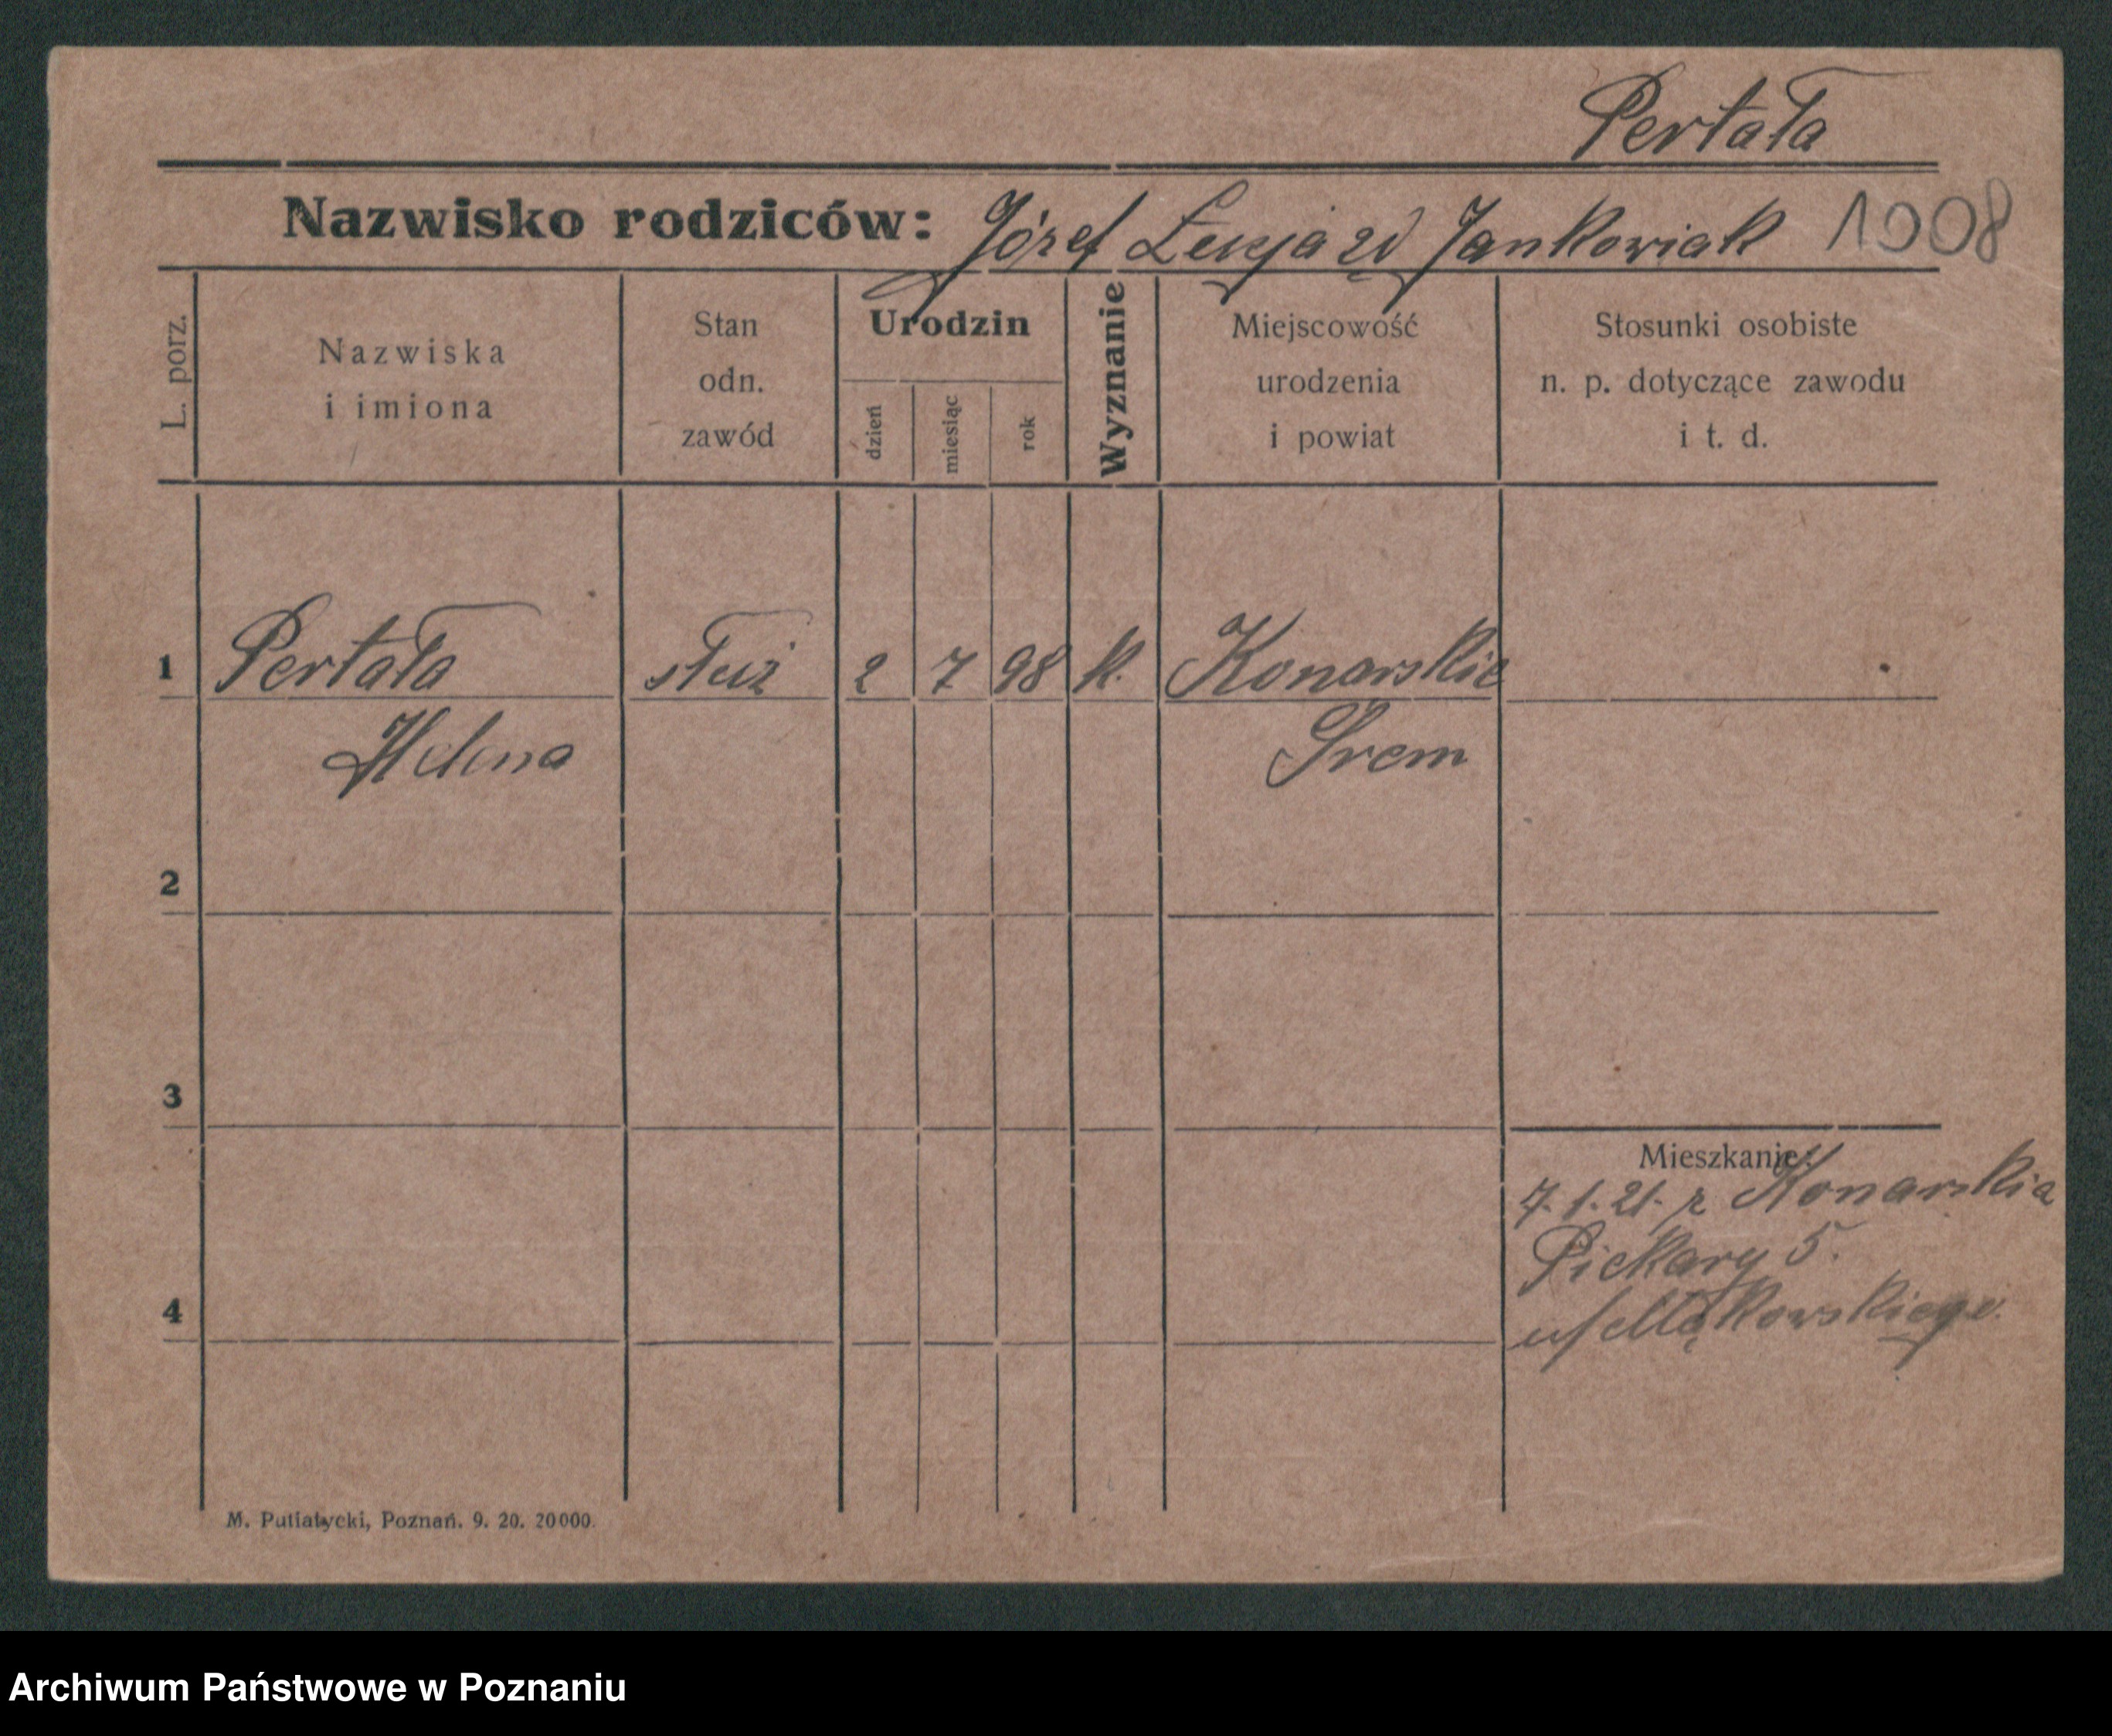 Pertała
Nazwisko rodziców: Józef Łucja zd Jankowiak 1008
L. porz.
Nazwiska
i imiona
Stan
odn.
zawód
Urodzin
dzień
miesiąc
rok
Wyznanie
Miejscowość
urodzenia
i powiat
Stosunki osobiste
n. p. dotyczące zawodu
i t. d.
1 Pertała służ 2 7 98 k. Konarskie
Helena Srem
2
3
Mieszkanie:
7.1.21. z Konarskia
Piekary 5.
u/ Mąkowskiego.
4
M. Putiatycki, Poznań. 9. 20. 20000.
Archiwum Państwowe w Poznaniu